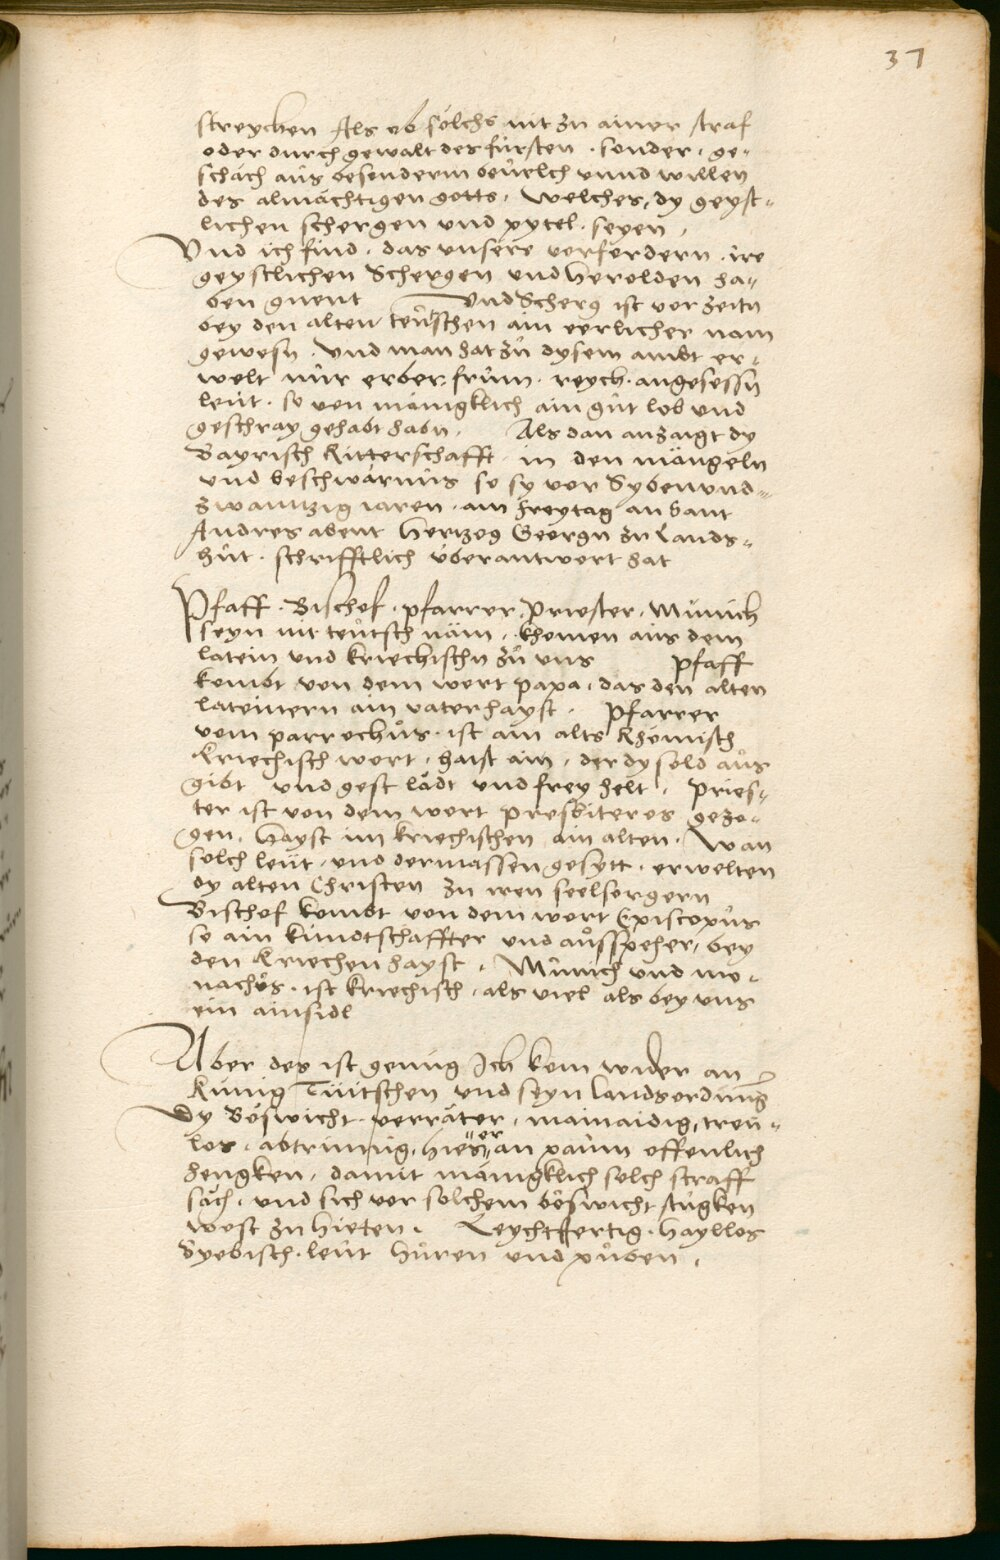 37
streychen Als ob sölchs nit zu ainer straf
oder durch gewalt des fürsten · sonder · ge-
schäch aus besonderm beuelch vnnd willen
des almächtigen gotts · welches, dy geyst-
lichen schergen vnd pytel · seyen ·
Vnd ich find · das vnsere vorfordern · ire
geystlichen Schergen vnd herolden ha-
ben gnent Vnd Scherg ist vor zeitn
bey den alten teutschen ain eerlicher nam
gewesn · vnd man hat zu dysem ambt er-
welt nur erber, frum · reych · angesessn
leut · so von mänigklich ain gut lob vnd
geschray gehabt habn · Als dan anzaigt dy
Bayrisch Ritterschafft in den mängeln
vnd beschwärnus so sy vor Sybenvnd-
zwaintzig iaren · am freytag an sant
Andres abent Hertzog Georgn zu Lands-
hut · schrifftlich vberantwort hat
Pfaff · Bischof · pfarrer, Priester · Münich
seyn nit teutsch näm · khomen aus dem
latein vnd kriechischn zu vns Pfaff
kombt von dem wort papa · das den alten
lateinern ain vater hayst · Pfarrer
vom parrochus · ist ain alts Rhömisch
kriechisch wort · haist ain · der dy sold aus
gibt vnd gest lädt vnd frey helt · Pries-
ter ist von dem wort preskiteros gezo-
gen · Hayst im kriechischen ain alten · Wan
solch leut · vnd dermassen gesytt · erwelten
dy alten Christen zu iren seelsorgern
Bischof kombt von dem wort Episcopus
so ain kundtschaffter vnd außspeher, bey
den kriechen hayst · Münich vnd mo-
nachos · ist kriechisch · als viel als bey vns
ein ainsidl
Aber des ist genug Ich kom wider an
künig Tuitschen vnd seyn landsordnung
Dy Böswicht · verräter · mainaidig, treu-
los · abtrinnig, hies er an paum offenlich
hengken · damit mänigklich solch straff
säch · vnd sich vor solchem böswicht stugken
west zu hieten · Leychtfertig · hayllos
Hyebisch leut huren vnd puben ·